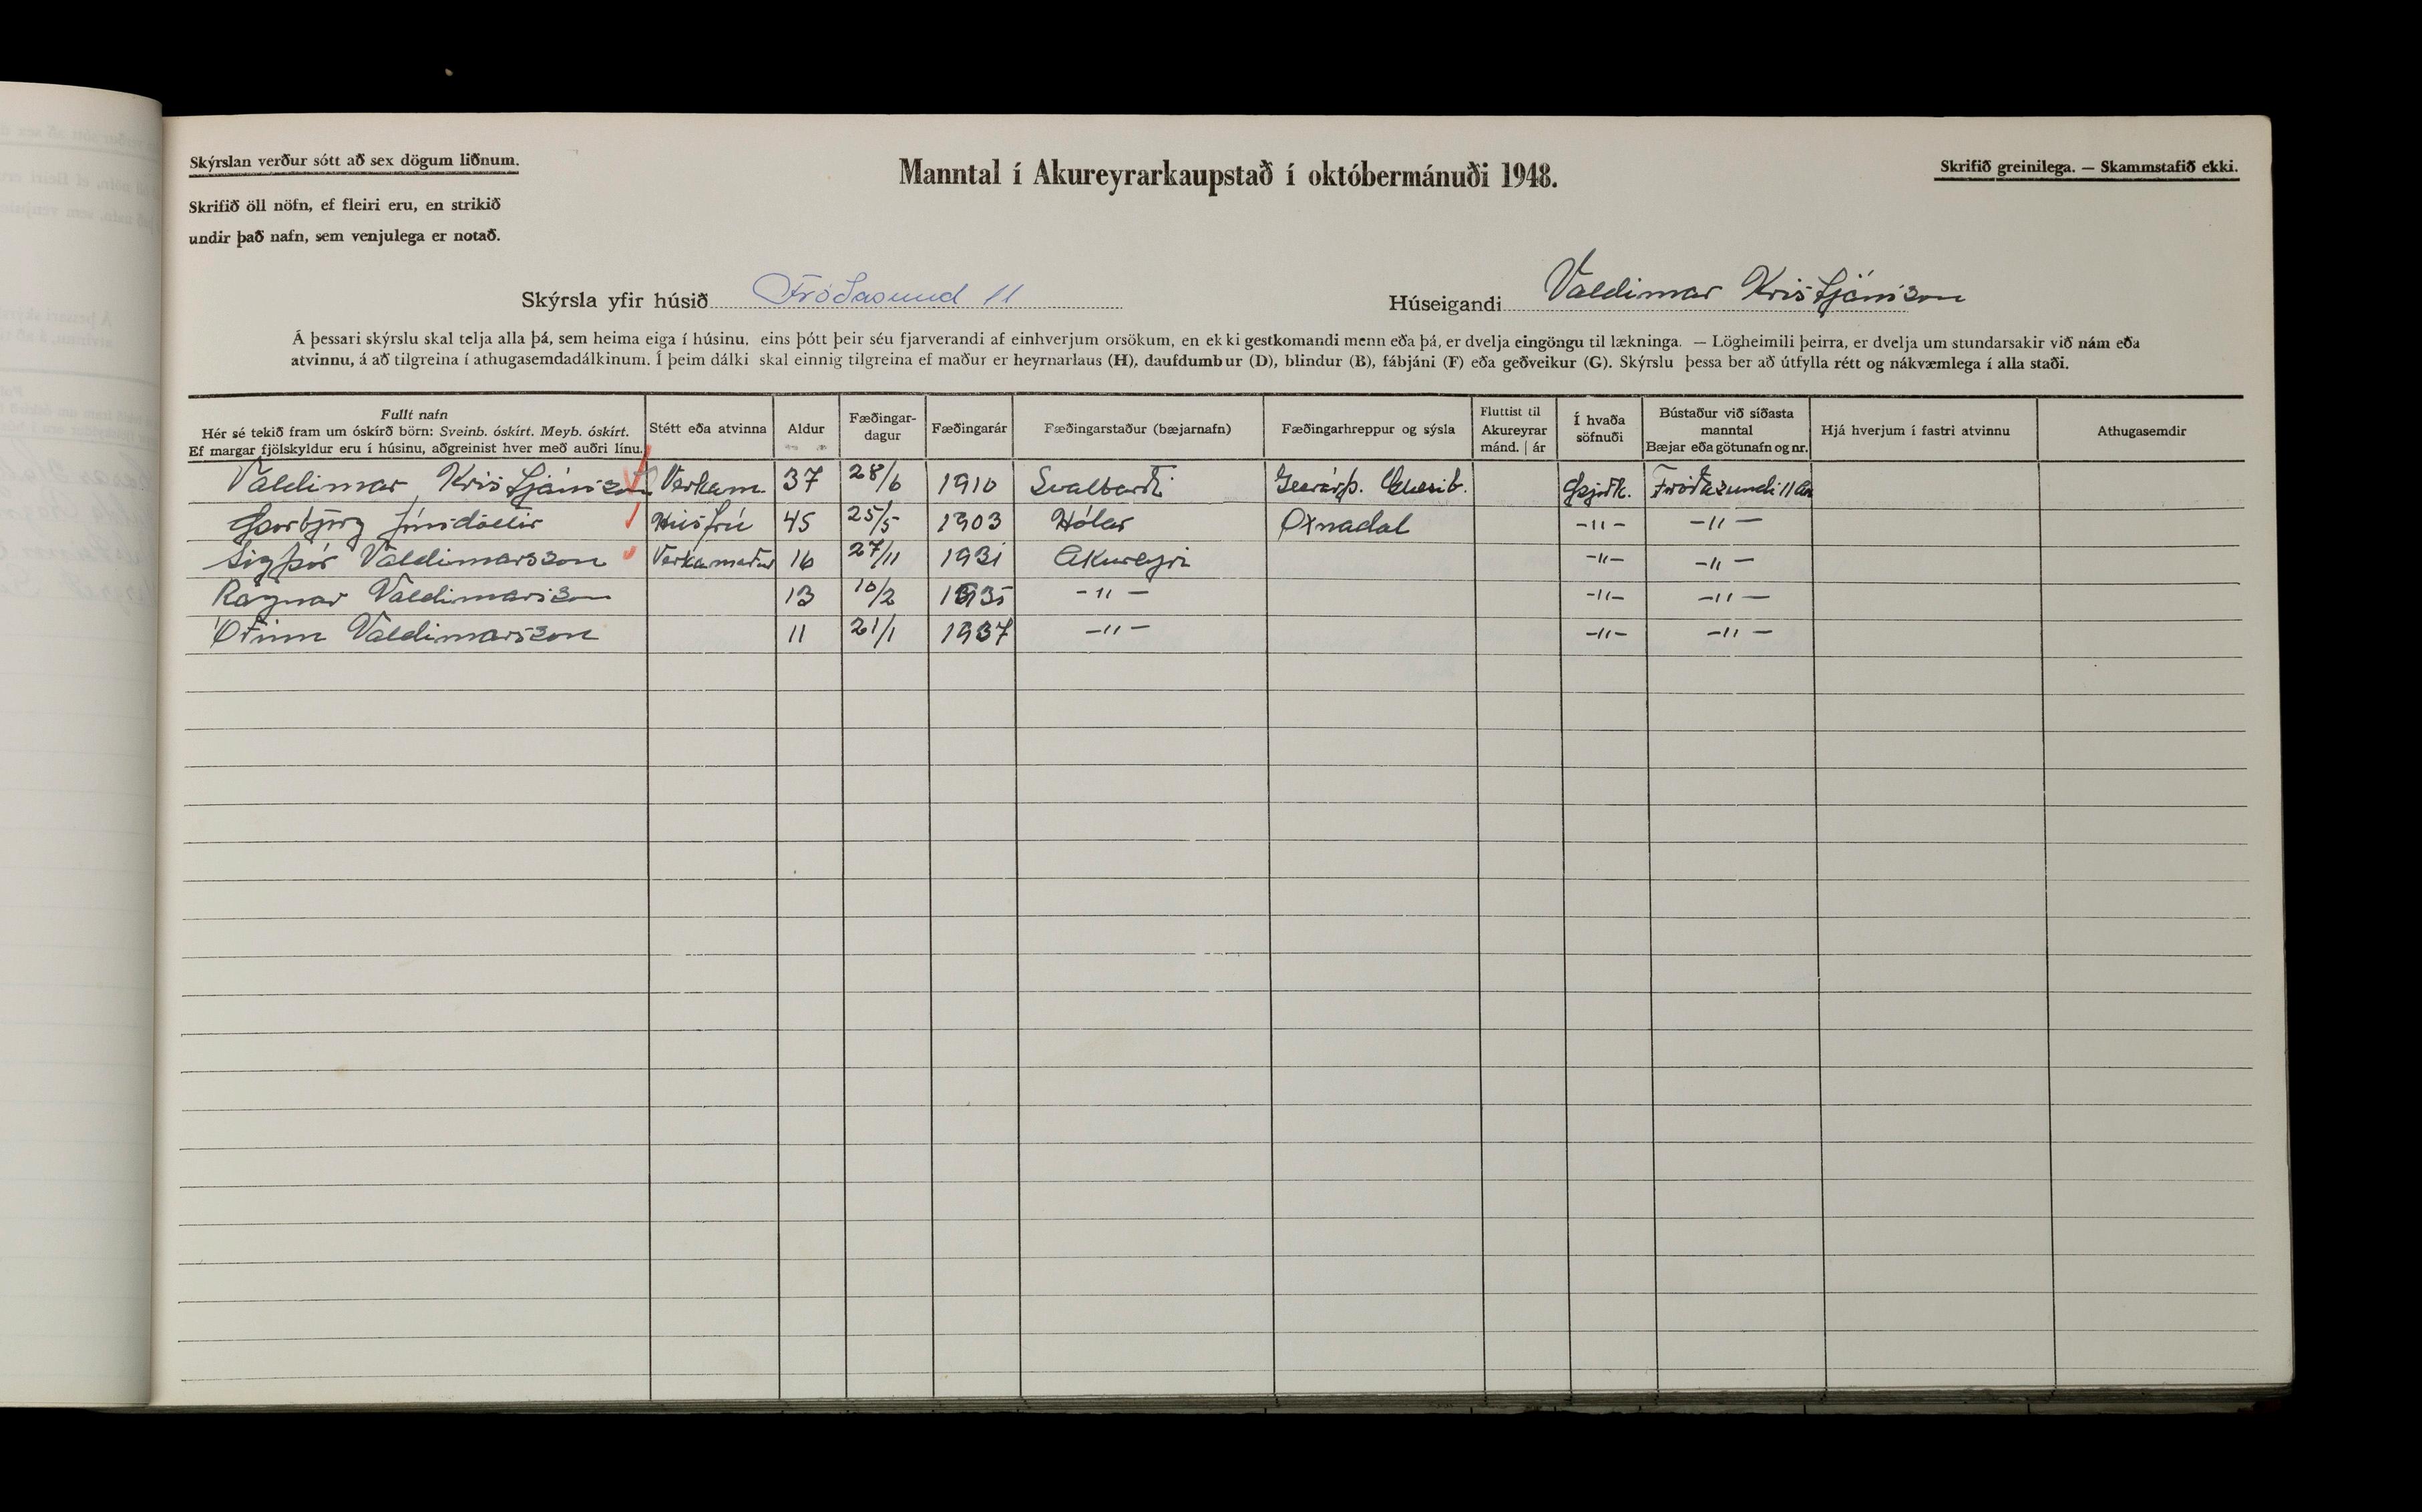 Skýrslan verður sótt að sex dögum liðnum.
Skrifið öll nöfn, ef fleiri eru, en strikið
undir það nafn, sem venjulega er notað.
Manntal í Akureyrarkaupstað í októbermánuði 1948.
Skrifið greinilega. — Skammstafið ekki.
Skýrsla yfir húsið Fróðasund 11
Húseigandi Valdimar Kristjánsson
Á þessari skýrslu skal telja alla þá, sem heima eiga í húsinu, eins þótt þeir séu fjarverandi af einhverjum orsökum, en ekki gestkomandi menn eða þá, er dvelja eingöngu til lækninga. — Lögheimili þeirra, er dvelja um stundarsakir við nám eða
atvinnu, á að tilgreina í athugasemdadálkinum. Í þeim dálki skal einnig tilgreina ef maður er heyrnarlaus (H), daufdumbur (D), blindur (B), fábjáni (F) eða geðveikur (G). Skýrslu þessa ber að útfylla rétt og nákvæmlega í alla staði.
Fullt nafn
Hér sé tekið fram um óskírð börn: Sveinb. óskírt. Meyb. óskírt.
Ef margar fjölskyldur eru í húsinu, aðgreinist hver með auðri línu.
Stétt eða atvinna
Aldur
Fæðingar-
dagur
Fæðingarár
Fæðingarstaður (bæjarnafn)
Fæðingarhreppur og sýsla
Fluttist til
Akureyrar
mánd. | ár
Í hvaða
söfnuði
Bústaður við síðasta
manntal
Bæjar eða götunafn og nr.
Hjá hverjum í fastri atvinnu
Athugasemdir
Valdimar Kristjánsson Verkam. 37 28/6 1910 Svalbarði Þjóðk. Fróðasundi 11
Þorbjörg Jónsdóttir Húsfrú 45 25/5 1903 Hólar Oxnadal -"- -"-
Sigþór Valdimarsson Verkamaður 16 27/11 1931 Akureyri -"- -"-
Ragnar Valdimarsson 13 10/2 1935 -"- -"- -"-
Óðinn Valdimarsson 11 21/1 1937 -"- -"- -"-